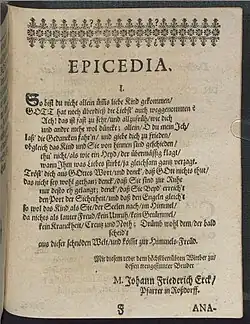 EPICEDIA.
I.
So bist du nicht allein ümb liebe Kind gekommen/
GOTT hat noch überdieß die Liebst' auch weggenommen?
Ach! das ist
und andre mehr mit düncket; allein/O du mein Ich/
laß' die Gedancken fahr'n/ und giebe dich zu frieden/
obgleich das Kind und Sie von hinnen sind geschieden/
thu' nicht/ als wie ein Heyd/ der übermässig klagt/
wann Ihm was Liebes stirbt/ und gleichsam gantz verzagt.
Tröst' dich aus GOttes Wort/ und denck/ daß GOtt nichts thut/
das nicht sey wohl gethan; denck/ daß Sie sind zur Ruhe
nur desto eh gelangt; denck/ daß Sie Beyd' erreich't
den Port der Sicherheit/ und daß den Engeln gleich't
so wol das Kind als Sie/ der Seelen nach/ im Himmel/
da nichts als lauter Freud/ kein Unruh/ kein Getümmel/
kein Kranckheit/ Creutz und Noth; Drümb wohl dem/ der bald
scheid't
aus dieser schnöden Welt/ und kömst zur Himmels-Freud.
Mit diesem wolte dem höchstbetrübten Wittber zu-
besten
M. Johann Friederich Erck/
Pfarrer in Roßdorff.
F
ANA-